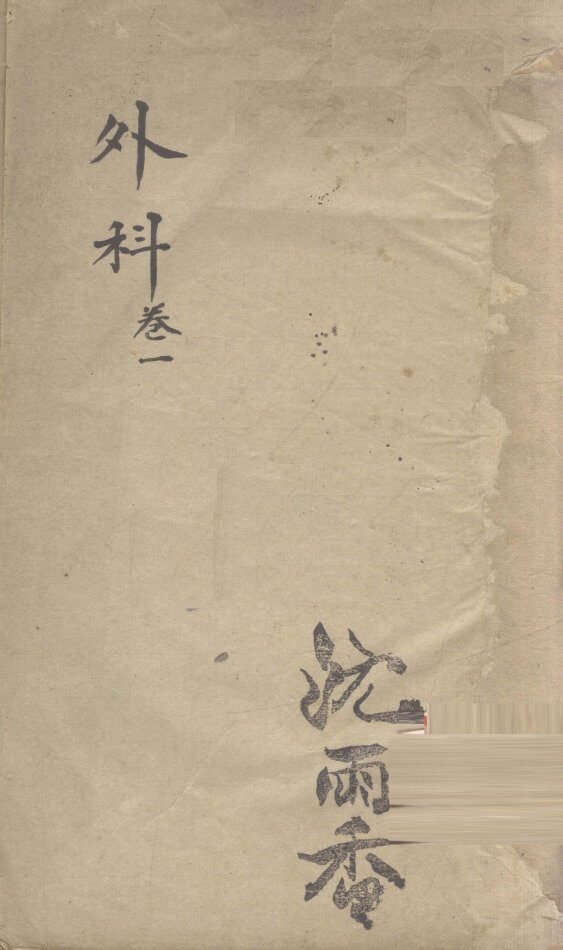 外科卷一
沈雨香